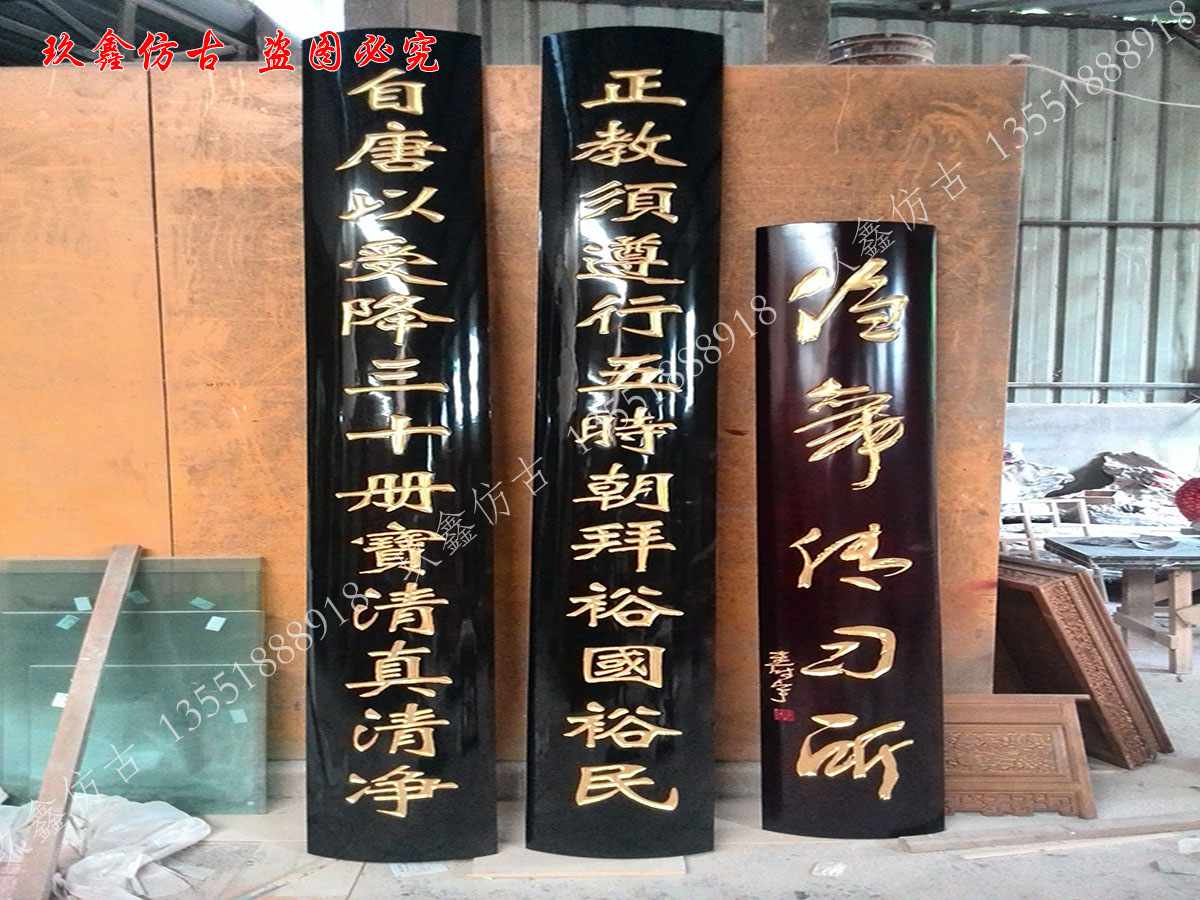 玖鑫仿古 盗图必究
正教须遵行五時朝拜裕國裕民
自唐以受降三十册寶清真清净
传习所
玖鑫仿古 13551888918
玖鑫仿古 13551888918
玖鑫仿古 13551888918